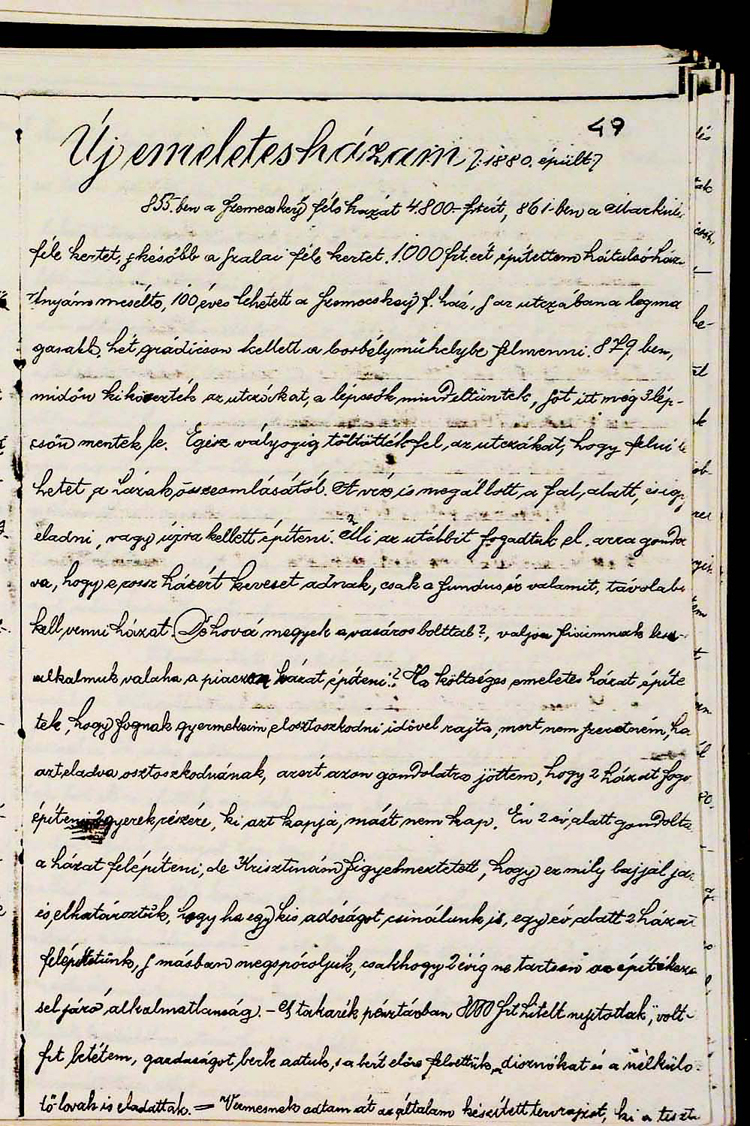 49
Új emeletes házam /: 1880. épült :/
855.ben a Szemecskey féle házat 4.800 frtért, 861-ben a
féle kertet, később a Szalai féle kertet. 1.000 frt.ért építettem hátulsó ház
Anyám mesélte, 100 éves lehetett a Szemecskey f. ház, s az utczában a legma
gasabb, hét grádicson kellett a borbélyműhelybe felmenni. 879 ben,
midőn kikövezték az utczákat, a lépcsők mind eltüntek, sőt itt még 3 lép-
csőn mentek le. Egész vályogig töltötték fel, az utczákat, hogy
hetet a házak összeomlásától. A víz is megállott, a fal, alatt, és így
eladni, vagy újra kellett építeni. Mi az utóbbit fogadtuk el. arra gondol
va, hogy e rossz házért keveset adnak, csak a fundus ér valamit, távolabb
kell venni házat. De hová megyek a vasáros bolttal?, valjon fiaimnak lesz-e
alkalmuk valaha a piaczon házat építeni? Ha költséges emeletes házat építe
tek, hogy fognak gyermekeim elosztoszkodni idővel rajta, mert nem szeretném, ha
azt eladva osztoszkodnának, azért azon gondolatra jöttem, hogy 2 házat fogo
építeni 2 gyerek részére, ki azt kapja, mást nem kap. Én 2 év alatt gondolta
a házat felépíteni, de Krisztinám figyelmeztetett, hogy ez mily bajjal jár
és elhatároztuk, hogy ha egy kis adóságot csinálunk is, egy év alatt 2 házat
felépítetünk, s másban megspóroljuk, csakhogy 2 évig ne tartson az építkezé
sel járó alkalmatlanság. - A takarék pénztárban 8000 frt hitelt nyitottak, volt-
frt betétem, gazdaságot bérbe adtuk, s a bért előre felvettük, disznókat és a nélkülö-
tő lovak is eladattak. = Vermesnek adtam át az általam készített tervrajzot, ki a tiszta